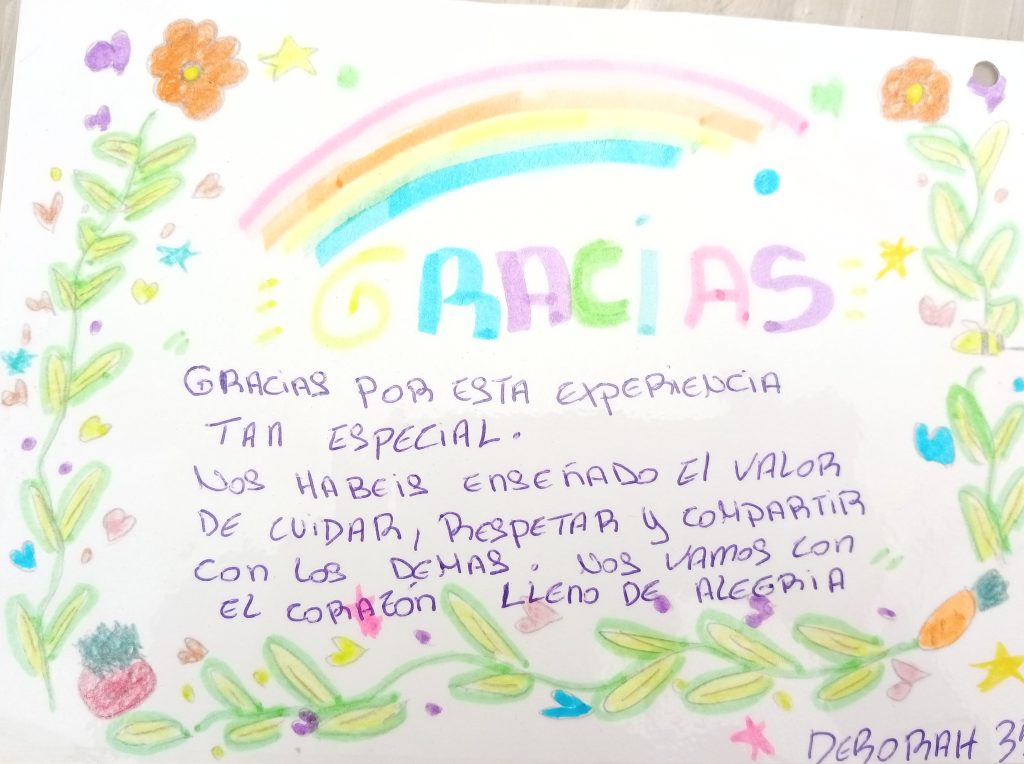 GRACÍAS
GRACIAS POR ESTA EXPERIENCIA
TAN ESPECIAL.
NOS HABEIS ENSEÑADO El VALOR
DE CUIDAR, RESPETAR Y COMPARTIR
CON LOS DEMAS. NOS VAMOS CON
EL CORAZÓN LLENO DE ALEGRIA
DEBORAH